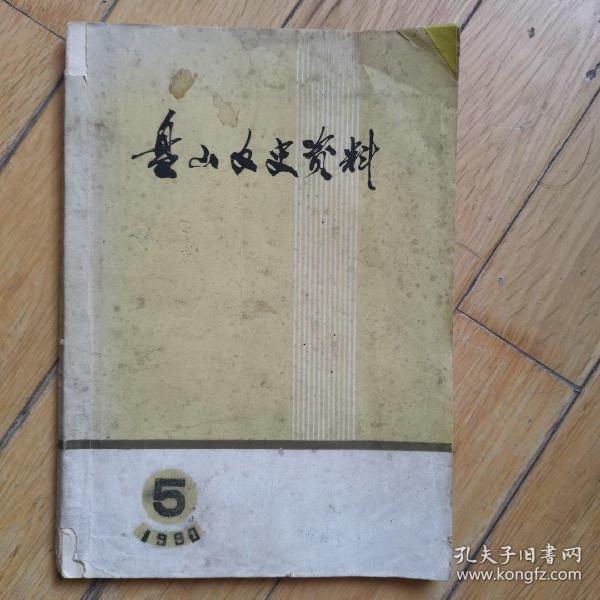 盘山文史资料
5
1990
孔夫子旧書网
www.kongfz.com